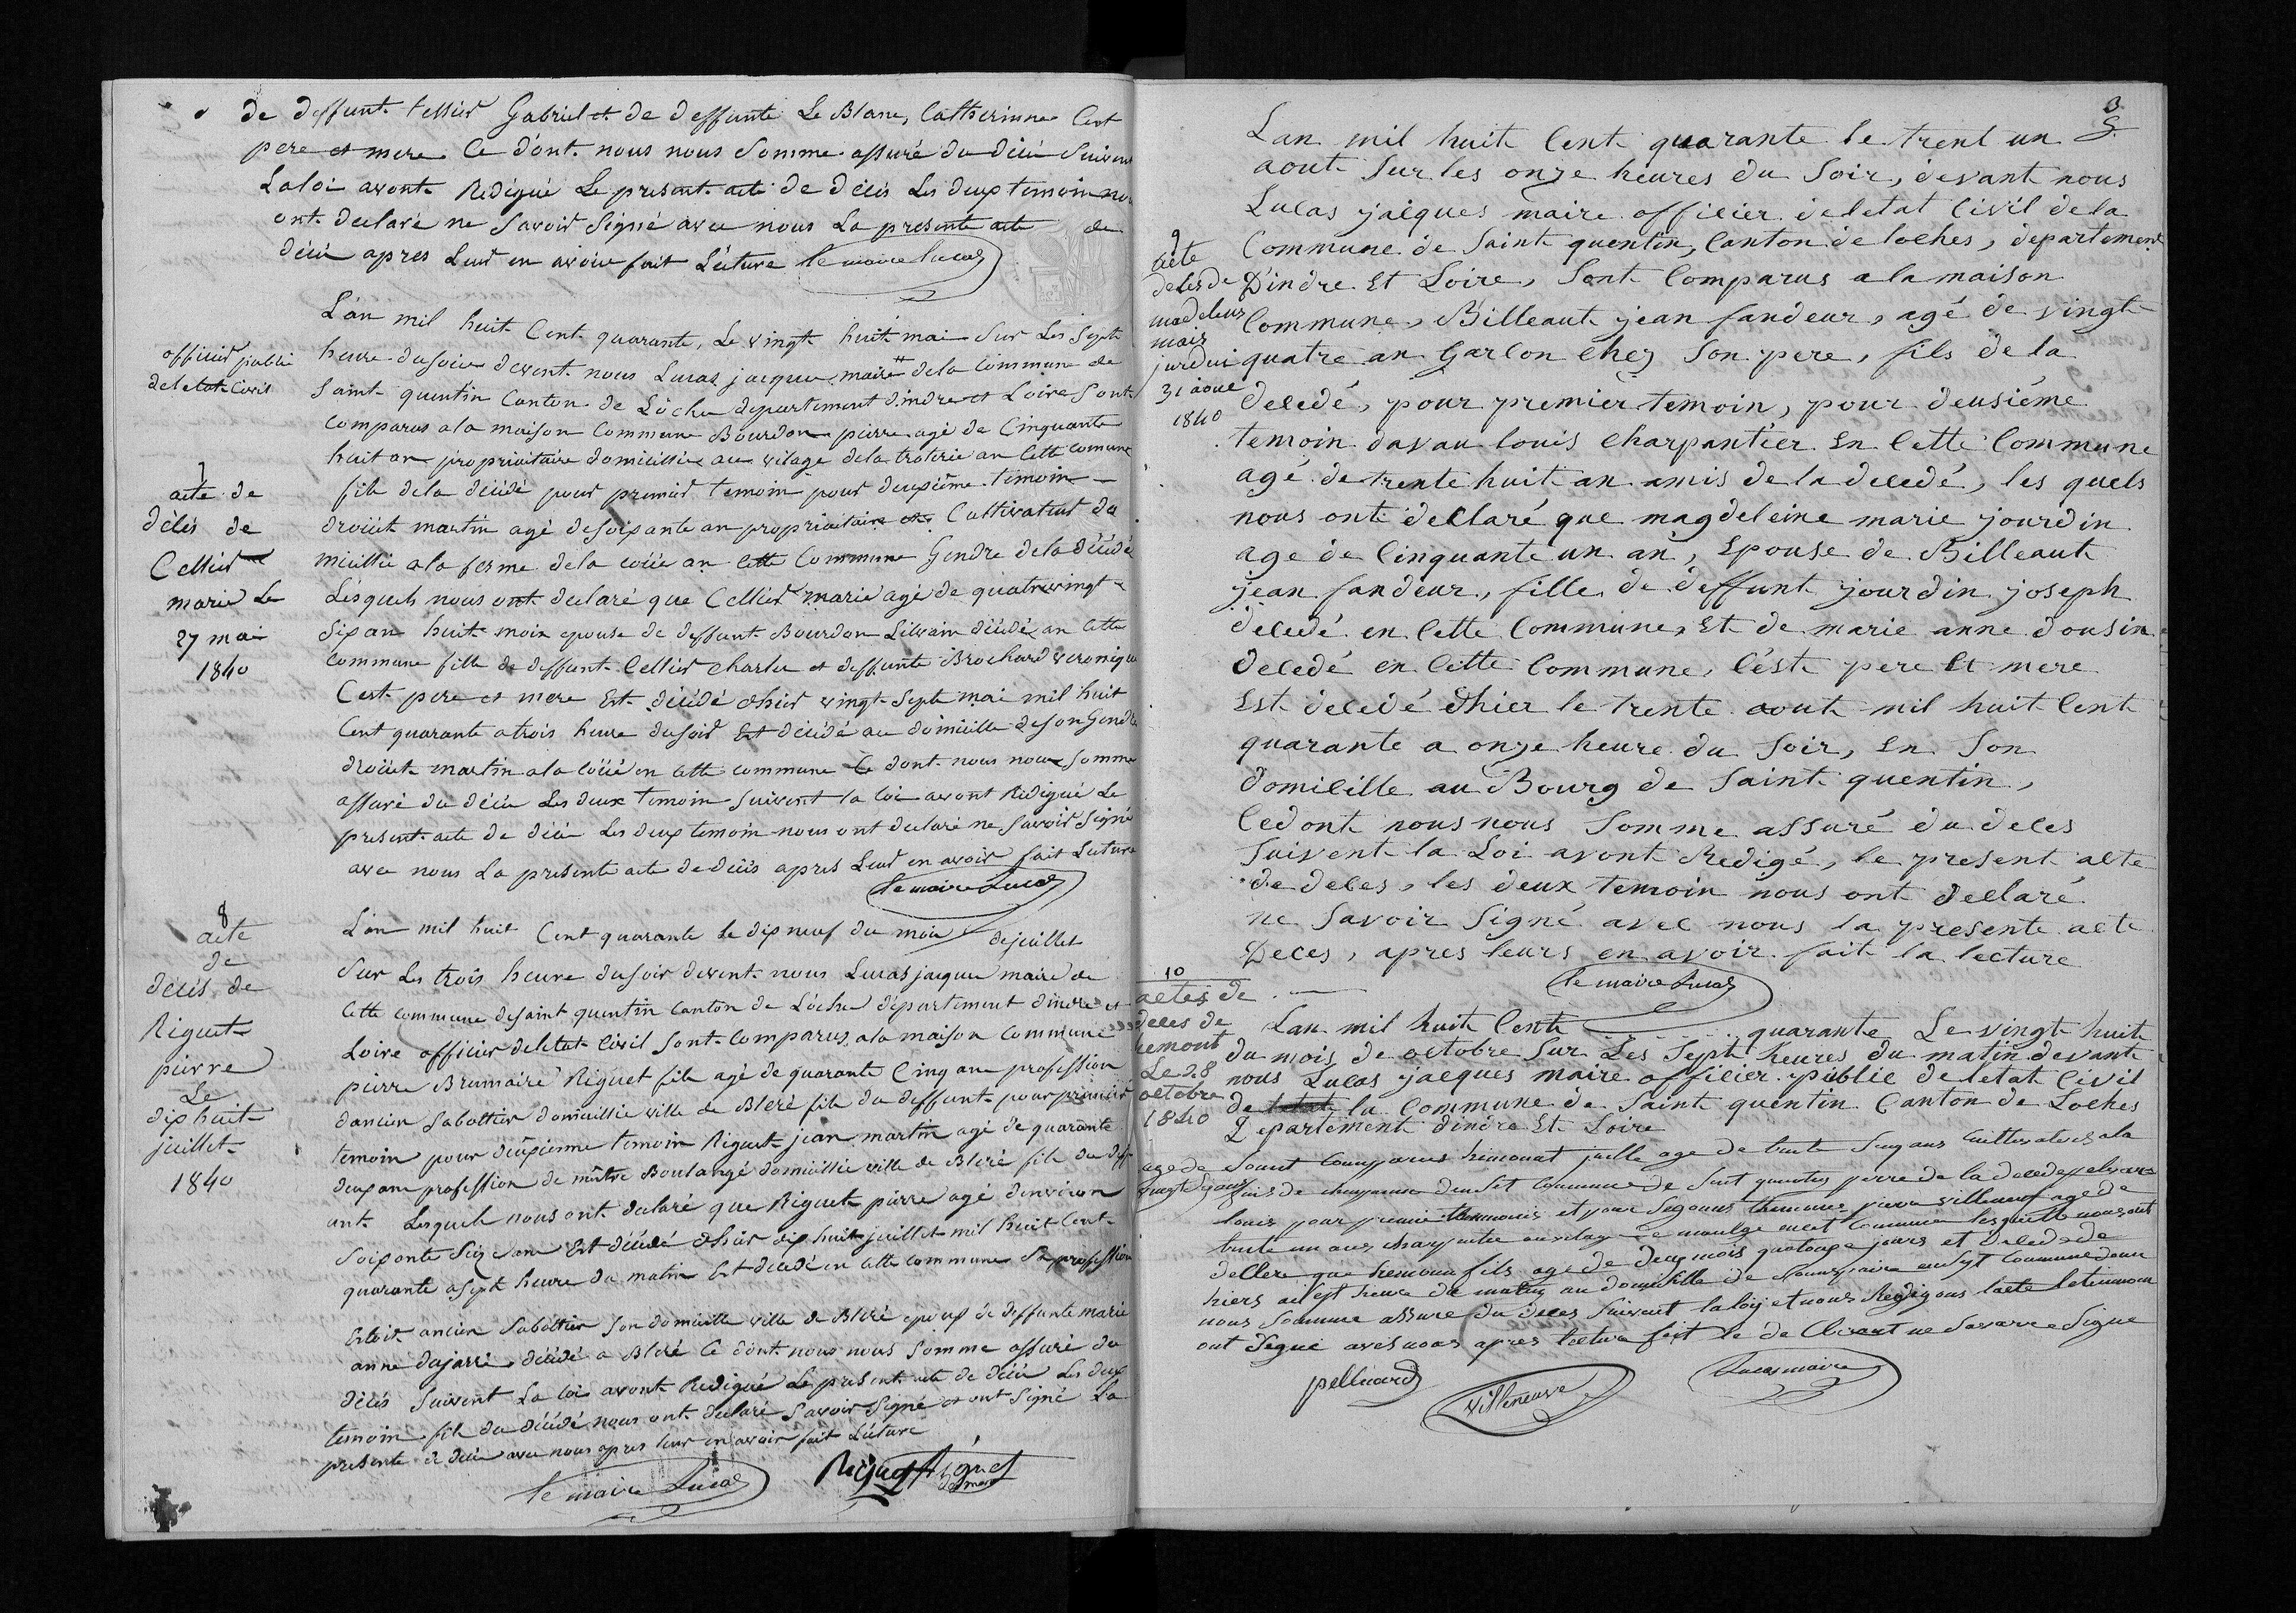 de deffunt tellier Gabriel et de deffunte Le Blanc, Catherinne Cest
pere et mere Ce dont nous nous Somme assuré du déces Suivent
La loi avont Redigué Le present acte de déces Les deux temoin nous
ont declaré ne Savoir Signé avec nous La presente acte de
déces apres Leur en avoir fait Lecture le maire Lucas
L'an mil huit Cent quarante, Le vingt huit mai Sur Les Sept
officier public
de letat Civil
heure du soir devent nous Lucas jacques maire # de la Commune de
Saint quentin Canton de Loche departement d'indre et Loire Sont
comparus a la maison Commune Bourdon pierre agé de Cinquante
huit an propriaitaire domicillié au vilage de la traterie an Cette comune
7
acte de
déces de
Cellier
marie Le
27 mai
1840
fils de la décédé pour premier temoin pour deuxième temoin
droüet martin agé de soixante an propriaitaire et Cultivateur do
micillié a la ferme de la coüée an Cette Commune Gendre de la décédé
Lesquels nous ont declaré que Cellier marie agé de quatrevingt
Six an huit mois epouse de deffunt Bourdon Silvain décédé an Cette
commune fille de deffunt Cellier Charles et deffunte Brochard veronique
Cest pere et mere Est décédé d'hier vingt Sept mai mil huit
Cent quarante a trois heure du soir Est décédé au domicille de son Gendre
droüet martin a la coüée en Cette commune Ce dont nous nous Somme
assuré du déces Les deux temoin Suivent la loi avont Redigué Le
present acte de déces Les deux temoin nous ont declaré ne Savoir Signé
avec nous La presente acte de déces apres Leur en avoir fait Lecture
le maire Lucas
8
acte
de
déces de
Riguet
pierre
Le
dix huit
juillet
1840
L'an mil huit Cent quarante le dix neuf du mois de juillet
Sur Les trois heure du soir devent nous Lucas jacques maire de
Cette commune de saint quentin Canton de Loche département d'indre et
Loire officier de letat Civil Sont Comparus a la maison Commune
pierre Brumaire Riguet fils agé de quarante Cinq an profession
d'ancien Sabottier domicillié ville de Bléré fils du deffunt pour premier
temoin pour deuxième temoin Riguet jean martin agé de quarante
deux an profession de maître Boulangé domicillié ville de Bléré fils du deff
unt Lesquels nous ont declaré que Riguet pierre agé d'environ
Soixante Seize an Est décédé d'hier dix huit juillet mil huit Cent
quarante a Sept heure du matin Est décédé en Cette commune Sa profession
Etoit ancien Sabottier Son domicille ville de Bléré epoux de deffunte marie
anne dujarrié décédé a Bléré Ce dont nous nous Somme assuré du
déces Suivent La loi avont Redigué Le present acte de déces Les deux
temoin fils du décédé nous ont declaré Savoir Signé et ont Signé La
presente de déces avec nous apres leur en avoir fait Lecture
le maire Lucas Riguet Riguet
3
Lan mil huit Cent quarante le trent un
aout Sur les onze heures du Soir, devant nous
Lucas jacques maire officier de letat Civil de la
Commune de Saint quentin, Canton de loches, departement
D'indre Et Loire, Sont Comparus a la maison
Commune, Billeaut jean fandeur, agé de vingt
quatre an Garcon chez Son pere, fils de la
decedé, pour premier temoin, pour deusiéme
temoin davau louis charpantier En Cette Commune
agé de trente huit an amis de la decedé, les quels
nous ont decllaré que magdeleine marie jourdin
age de Cinquante un an, Epouse de Billeaut
jean fandeur, fille de deffunt jourdin joseph
decedé en Cette Commune, Et de marie anne dousin
decedé en Cette Commune, Cést pere Et mere
Est decedé d'hier le trente aout mil huit Cent
quarante a onze heure du Soir, En Son
domicille au Bourg de Saint quentin,
Cedont nous nous Somme assuré du deces
Suivent la Loi avont Redigé, le present acte
de deces, les deux temoin nous ont decllaré
ne Savoir Signé avec nous la presente acte
Deces, apres leurs en avoir fait la lecture
le maire Lucas
9
acte
deces de
madeleine
marie
jurduin
31 aoue
1840
10
actes de
deces de
remont
Le 28
octobre
1840
Lan mil huit Cent quarante Le vingt huit
du mois de octobre Sur Les Sept heures du matin devant
nous Lucas jacques maire officier public de letat Civil
de la Commune de Saint quentin Canton de Loches
Departement dindre Et Loire
age de
vingt dix ans
louis pour premie et pour Segons pierre villeneuf age de
trente un ans charpentie au vilage en cet Commune lesquelle nous ont
dellere que fils age de deux mois quatorze jours et
nous Somme assure du deces Suivent la loy et nous Redigons lacte
ont Signe avec nous apres lecture fait
pelluard
Villeneuve
Lucas maire